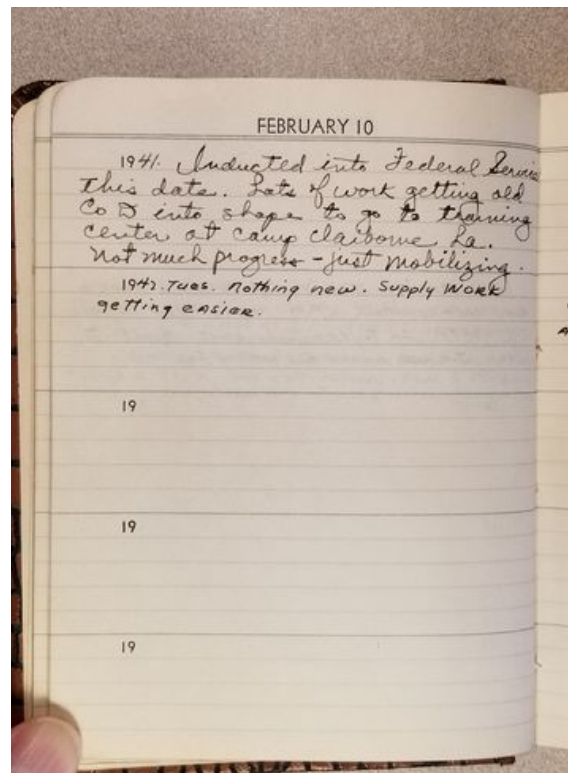 FEBRUARY 10
1941. Inducted into Federal Service
this date. Lots of work getting old
Co D into shape to go to training
center at Camp Claiborne La.
Not much progress - just mobilizing.
1942. Tues. nothing new. Supply WORK
getting EASIER.
19
19
19